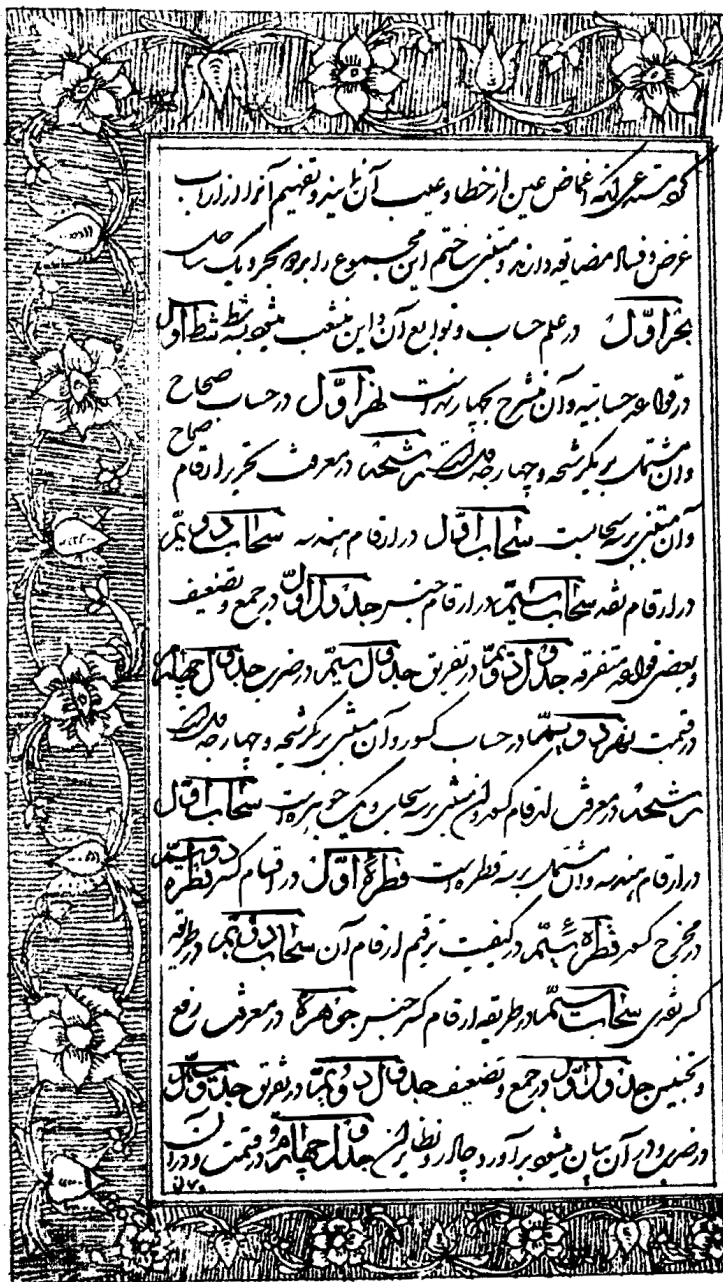 که مستدعی آنکه اغماض عین از خطا و عیب آن نمایند و تفهیم آنرا از ارباب
غرض و فساد مضایقه دارند و مبتنی ساختم این مجموع را بر دو بحر و یک ساحل
بحر اوّل در علم حساب و توابع آن و این منشعب میشود بسه شط شط اول
در قواعد حسابیه و آن منشرح بچهار نهر است نهر اوّل در حساب صحاح
و آن مشتمل بر یک رشحه و چهار جدول است رشحه در معرفت تحریر ارقام صحاح
و آن مبتنی بر سه سحابست سحاب اوّل در ارقام هندسه سحاب دویّم
در ارقام نقد سحاب سیّم در ارقام جنس جدول اوّل در جمع و تضعیف
و بعضی قواعد متفرقه جدول دویّم در تفریق جدول سیّم در ضرب جدول چهارم
در قسمت نهر دویّم در حساب کسور و آن مبتنی بر یک رشحه و چهار جدول است
رشحه در معرفت ارقام کسور و این مبتنی بر سه سحاب و یک جوهره است سحاب اوّل
در ارقام هندسه و آن مشتمل بر سه قطره است قطره اوّل در اقسام کسر قطره دویّم
در مخرج کسور قطره سیّم در کیفیت ترقیم ارقام آن سحاب دویّم در طریقه
کسر نقدی سحاب سیّم در طریقه ارقام کسر جنس جوهره در معرفت رفع
و تجنیس جدول اوّل در جمع و تضعیف جدول دویّم در تفریق جدول سیّم
در ضرب و در آن بیان میشود برآورد و نظایر این جدول چهارم در قسمت و در آن